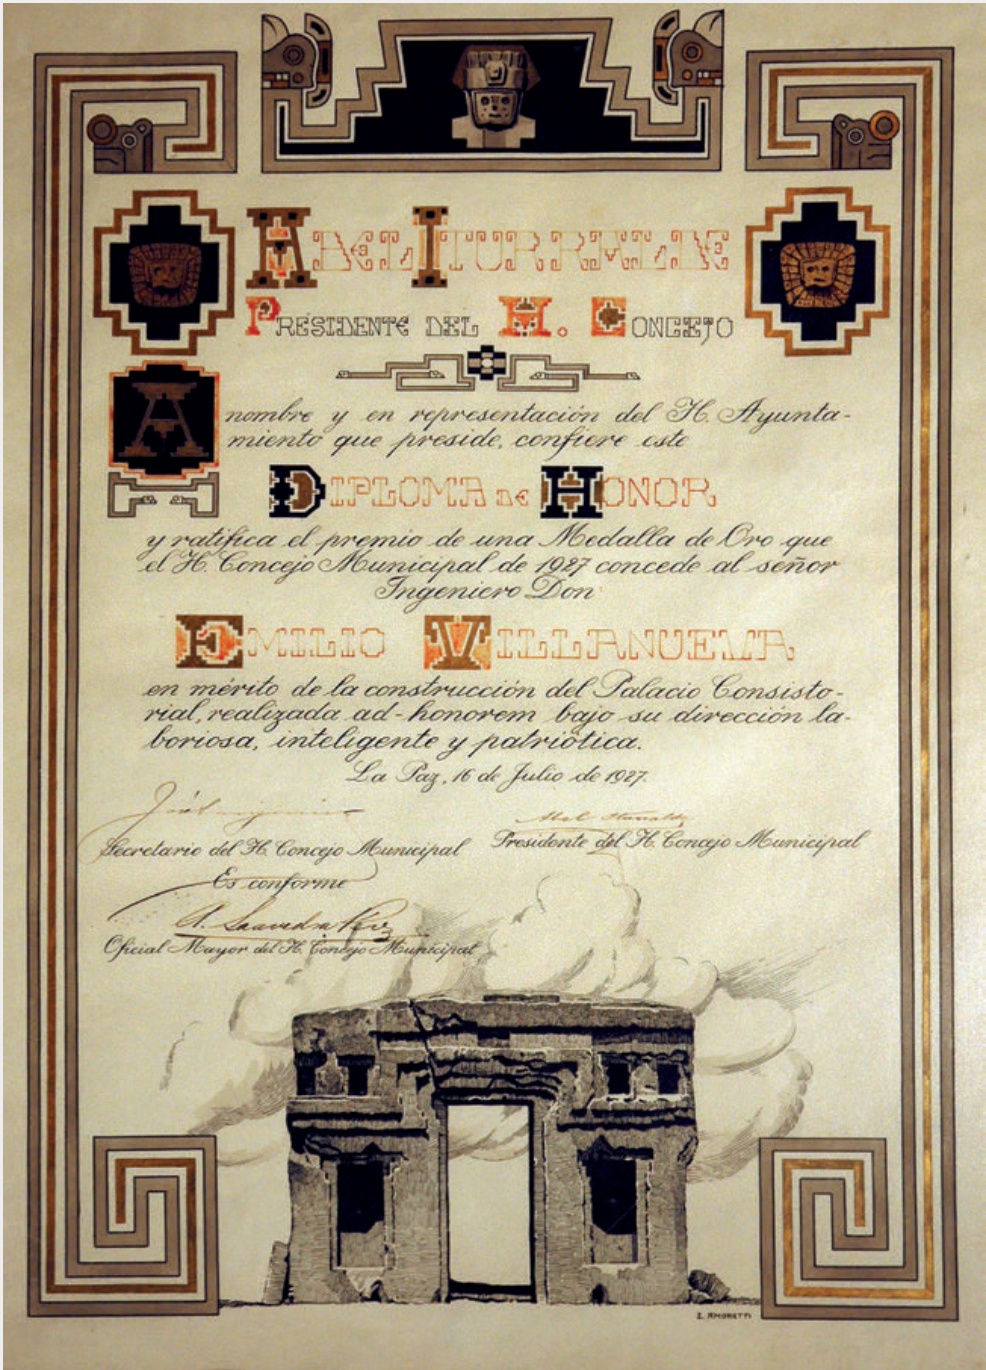 ABEL ITURRALDE
PRESIDENTE DEL H. CONCEJO
A nombre y en representación del H. Ayunta-
miento que preside, confiere este
DIPLOMA DE HONOR
y ratifica el premio de una Medalla de Oro que
el H. Concejo Municipal de 1927 concede al señor
Ingeniero Don
EMILIO VILLANUEVA
en mérito de la construcción del Palacio Consisto-
rial, realizada ad-honorem bajo su dirección la-
boriosa, inteligente y patriótica.
La Paz, 16 de Julio de 1927.
Abel Iturralde
Secretario del H. Concejo Municipal Presidente del H. Concejo Municipal
Es conforme
A. Saavedra
Oficial Mayor del H. Concejo Municipal
E. AMORETTI